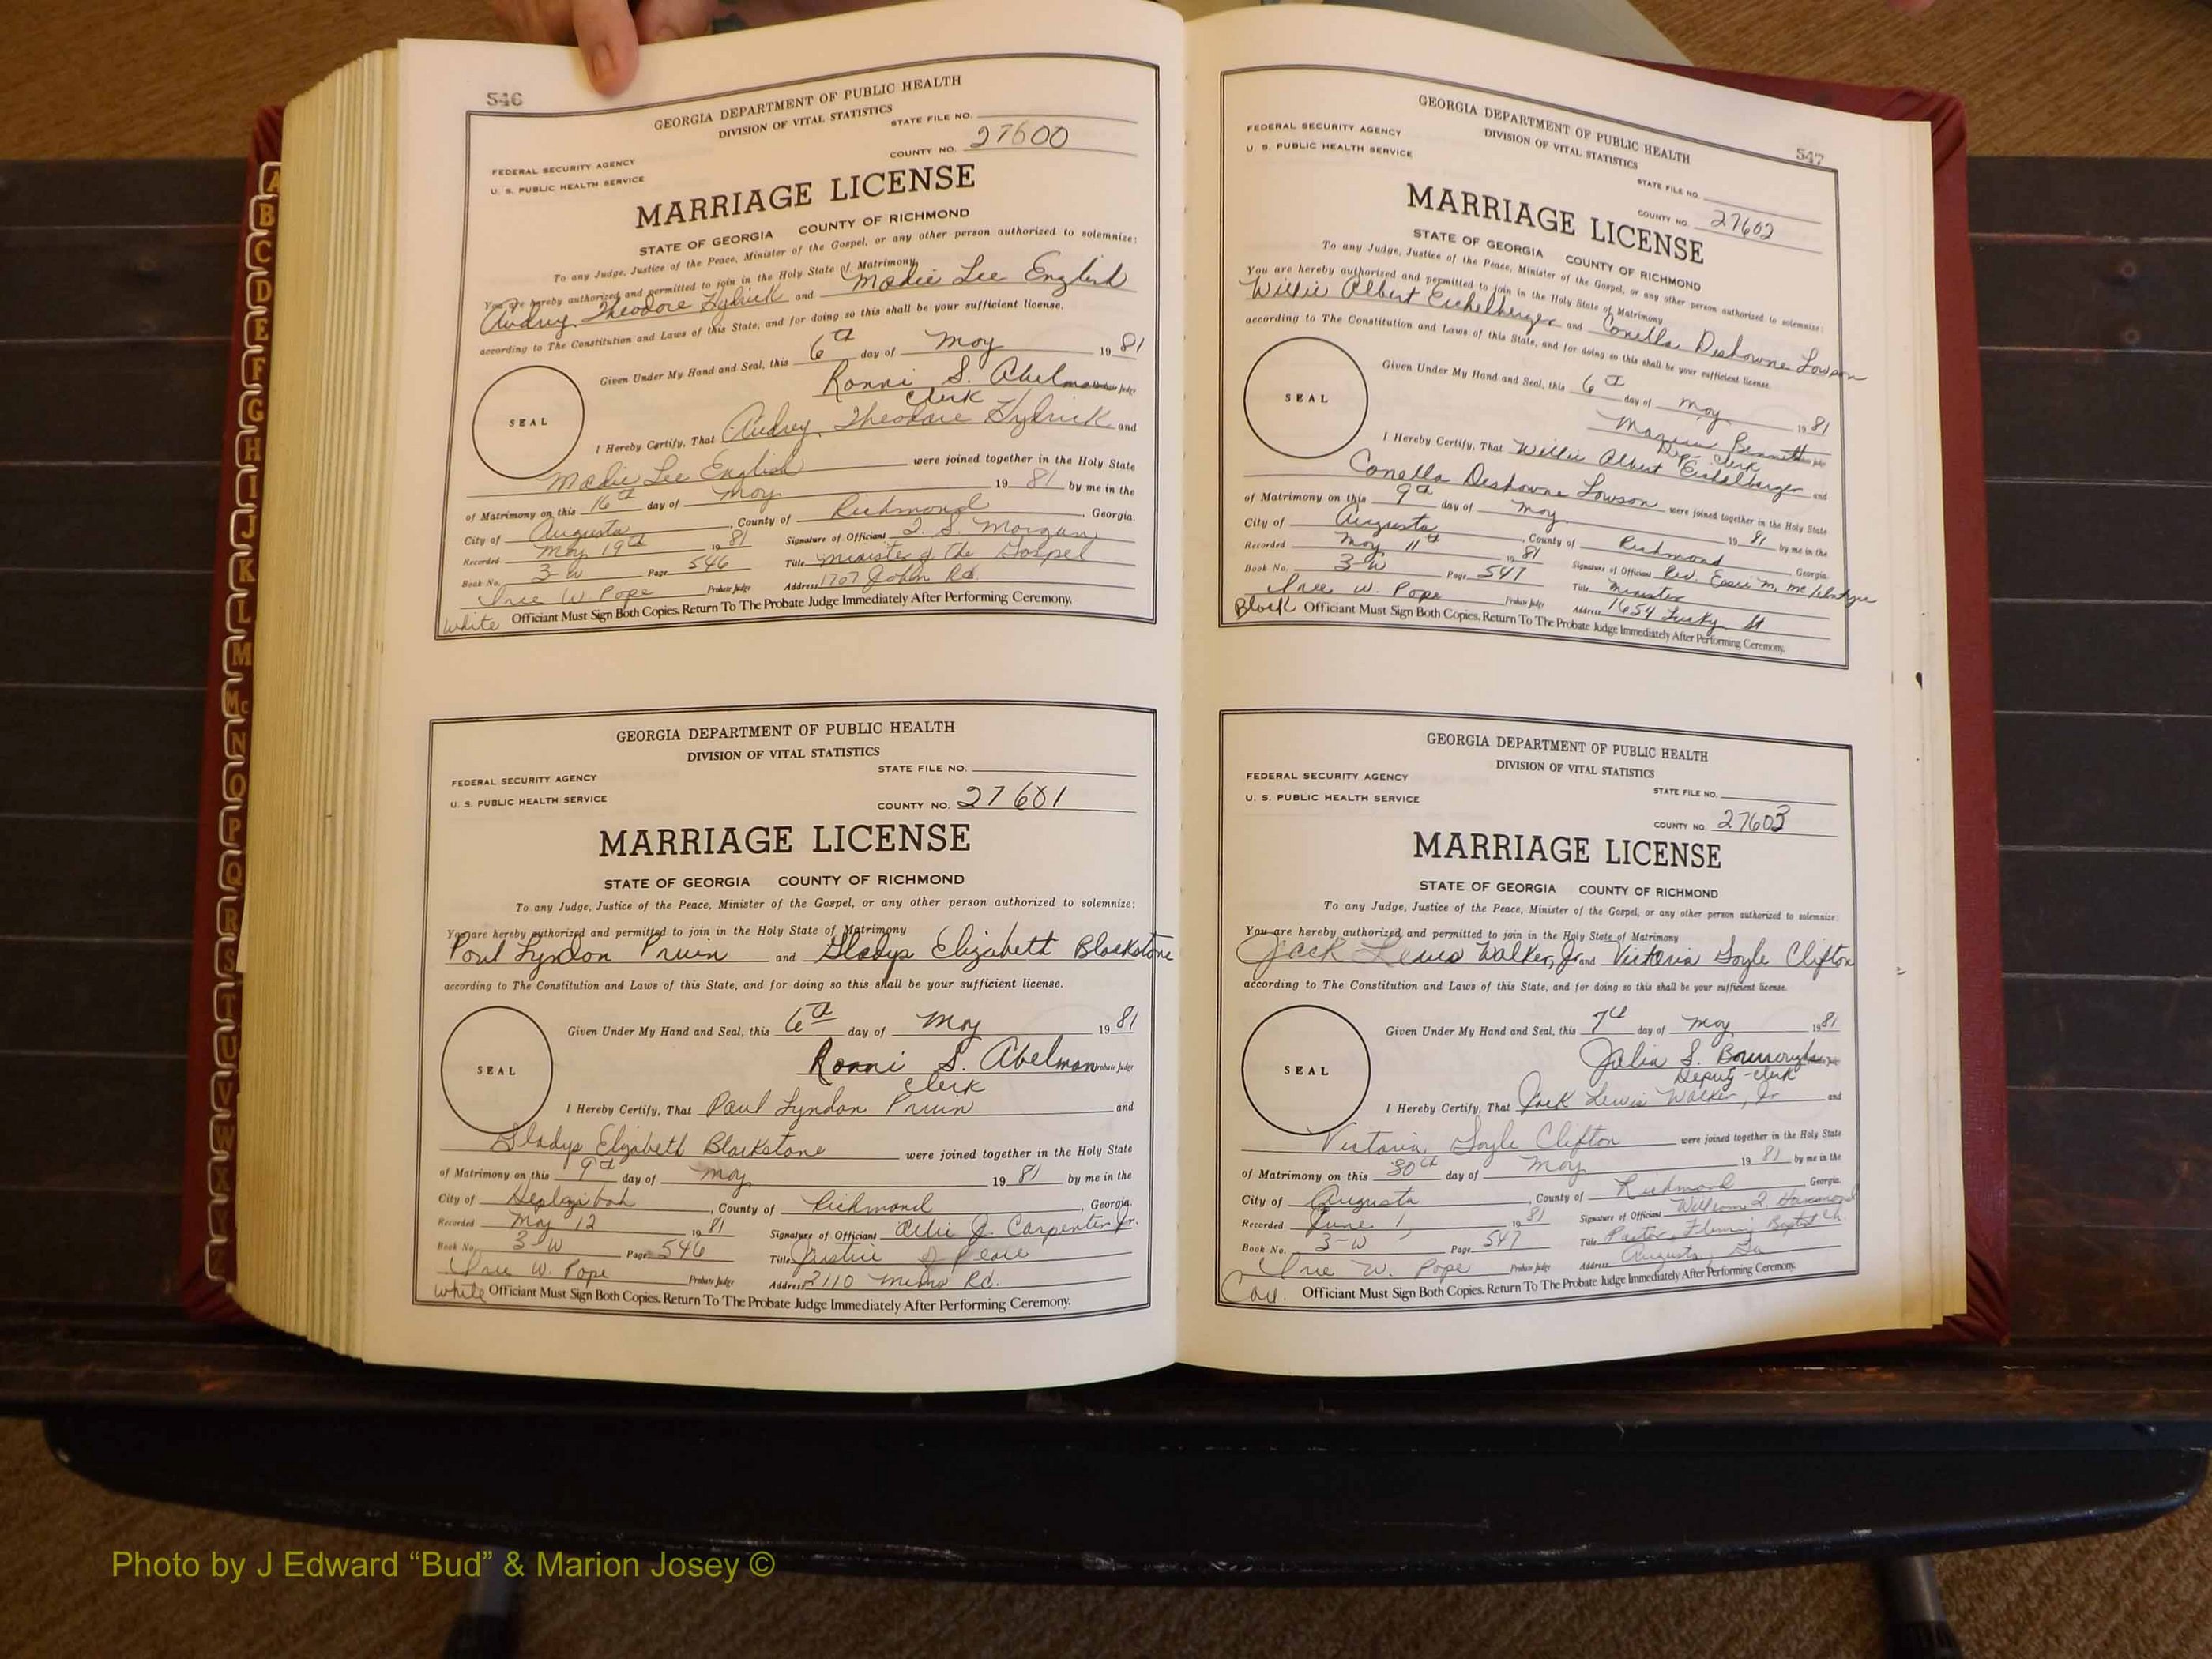 546
GEORGIA DEPARTMENT OF PUBLIC HEALTH
DIVISION OF VITAL STATISTICS
STATE FILE NO.
FEDERAL SECURITY AGENCY
COUNTY NO. 27600
U. S. PUBLIC HEALTH SERVICE
MARRIAGE LICENSE
STATE OF GEORGIA COUNTY OF RICHMOND
To any Judge, Justice of the Peace, Minister of the Gospel, or any other person authorized to solemnize:
You are hereby authorized and permitted to join in the Holy State of Matrimony
Audrey Theodore Hydrick and Modie Lee English
according to The Constitution and Laws of this State, and for doing so this shall be your sufficient license.
Given Under My Hand and Seal, this 6th day of May 19 81
Ronni S. Abelman Probate Judge
Clerk
SEAL
I Hereby Certify, That Audrey Theodore Hydrick and
Modie Lee English were joined together in the Holy State
of Matrimony on this 16th day of May 19 81 by me in the
City of Augusta, County of Richmond, Georgia.
Recorded May 19th 19 81 Signature of Officiant J. S. Morgan
Book No. 3-W Page 546 Title Minister of the Gospel
Iree W. Pope Probate Judge Address 1707 John Rd.
White Officiant Must Sign Both Copies. Return To The Probate Judge Immediately After Performing Ceremony.
GEORGIA DEPARTMENT OF PUBLIC HEALTH
DIVISION OF VITAL STATISTICS
STATE FILE NO.
FEDERAL SECURITY AGENCY
U. S. PUBLIC HEALTH SERVICE
COUNTY NO. 27601
MARRIAGE LICENSE
STATE OF GEORGIA COUNTY OF RICHMOND
To any Judge, Justice of the Peace, Minister of the Gospel, or any other person authorized to solemnize:
You are hereby authorized and permitted to join in the Holy State of Matrimony
Paul Lyndon Pruin and Gladys Elizabeth Blackstone
according to The Constitution and Laws of this State, and for doing so this shall be your sufficient license.
Given Under My Hand and Seal, this 6th day of May 19 81
Ronni S. Abelman Probate Judge
Clerk
SEAL
I Hereby Certify, That Paul Lyndon Pruin and
Gladys Elizabeth Blackstone were joined together in the Holy State
of Matrimony on this 9th day of May 19 81 by me in the
City of Hephzibah, County of Richmond, Georgia.
Recorded May 12 19 81 Signature of Officiant Ollie J. Carpenter Jr.
Book No. 3-W Page 546 Title Justice of Peace
Iree W. Pope Probate Judge Address 3110 Mims Rd.
White Officiant Must Sign Both Copies. Return To The Probate Judge Immediately After Performing Ceremony.
547
GEORGIA DEPARTMENT OF PUBLIC HEALTH
DIVISION OF VITAL STATISTICS
FEDERAL SECURITY AGENCY
U. S. PUBLIC HEALTH SERVICE
STATE FILE NO.
COUNTY NO. 27602
MARRIAGE LICENSE
STATE OF GEORGIA COUNTY OF RICHMOND
To any Judge, Justice of the Peace, Minister of the Gospel, or any other person authorized to solemnize:
You are hereby authorized and permitted to join in the Holy State of Matrimony
Willie Albert Eichelberger and Conella Deshowne Lowson
according to The Constitution and Laws of this State, and for doing so this shall be your sufficient license.
Given Under My Hand and Seal, this 6th day of May 19 81
Bennett Probate Judge
Dep. Clerk
SEAL
I Hereby Certify, That Willie Albert Eichelberger and
Conella Deshowne Lowson were joined together in the Holy State
of Matrimony on this 9th day of May 19 81 by me in the
City of Augusta, County of Richmond Georgia.
Recorded May 11th 19 81 Signature of Officiant Rev. Essie M.
Book No. 3-W Page 547 Title Minister
Iree W. Pope Probate Judge Address 1654 Lucky St
Black Officiant Must Sign Both Copies. Return To The Probate Judge Immediately After Performing Ceremony.
GEORGIA DEPARTMENT OF PUBLIC HEALTH
DIVISION OF VITAL STATISTICS
FEDERAL SECURITY AGENCY
STATE FILE NO.
U. S. PUBLIC HEALTH SERVICE
COUNTY NO. 27603
MARRIAGE LICENSE
STATE OF GEORGIA COUNTY OF RICHMOND
To any Judge, Justice of the Peace, Minister of the Gospel, or any other person authorized to solemnize:
You are hereby authorized and permitted to join in the Holy State of Matrimony
Jack Lewis Walker, Jr. and Victoria Goyle Clifton
according to The Constitution and Laws of this State, and for doing so this shall be your sufficient license.
Given Under My Hand and Seal, this 7th day of May 19 81
Julia S. Burroughs Probate Judge
Deputy-Clerk
SEAL
I Hereby Certify, That Jack Lewis Walker, Jr and
Victoria Goyle Clifton were joined together in the Holy State
of Matrimony on this 30th day of May 19 81 by me in the
City of Augusta, County of Richmond Georgia.
Recorded June 1, 19 81 Signature of Officiant William
Book No. 3-W Page 547 Title Pastor, Fleming Baptist Ch.
Iree W. Pope Probate Judge Address Augusta, Ga
Cau. Officiant Must Sign Both Copies. Return To The Probate Judge Immediately After Performing Ceremony.
A
B
C
D
E
F
G
H
I
J
K
L
M
Mc
N
O
P
Q
R
S
T
U
V
W
X
Y
Z
Photo by J Edward “Bud” & Marion Josey ©